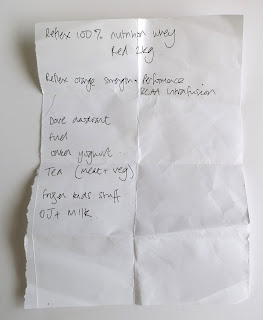 Reflex 100% nutrition whey
Red 2kg
Reflex orange strength + Performance
BCAA Intrafusion
Dove deodorant
fuel
onken yoghurt
Tea (meat + veg)
frozen kids stuff
OJ + Milk